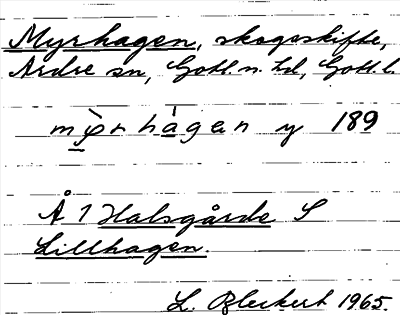 Myrhagen, skogsskifte,
Ardre sn, Gotl. n. hd, Gotl. l.
mỳrhàgen y 189
Å 1 Halsgårde S
Lillhagen.
L. Bleckert 1965.